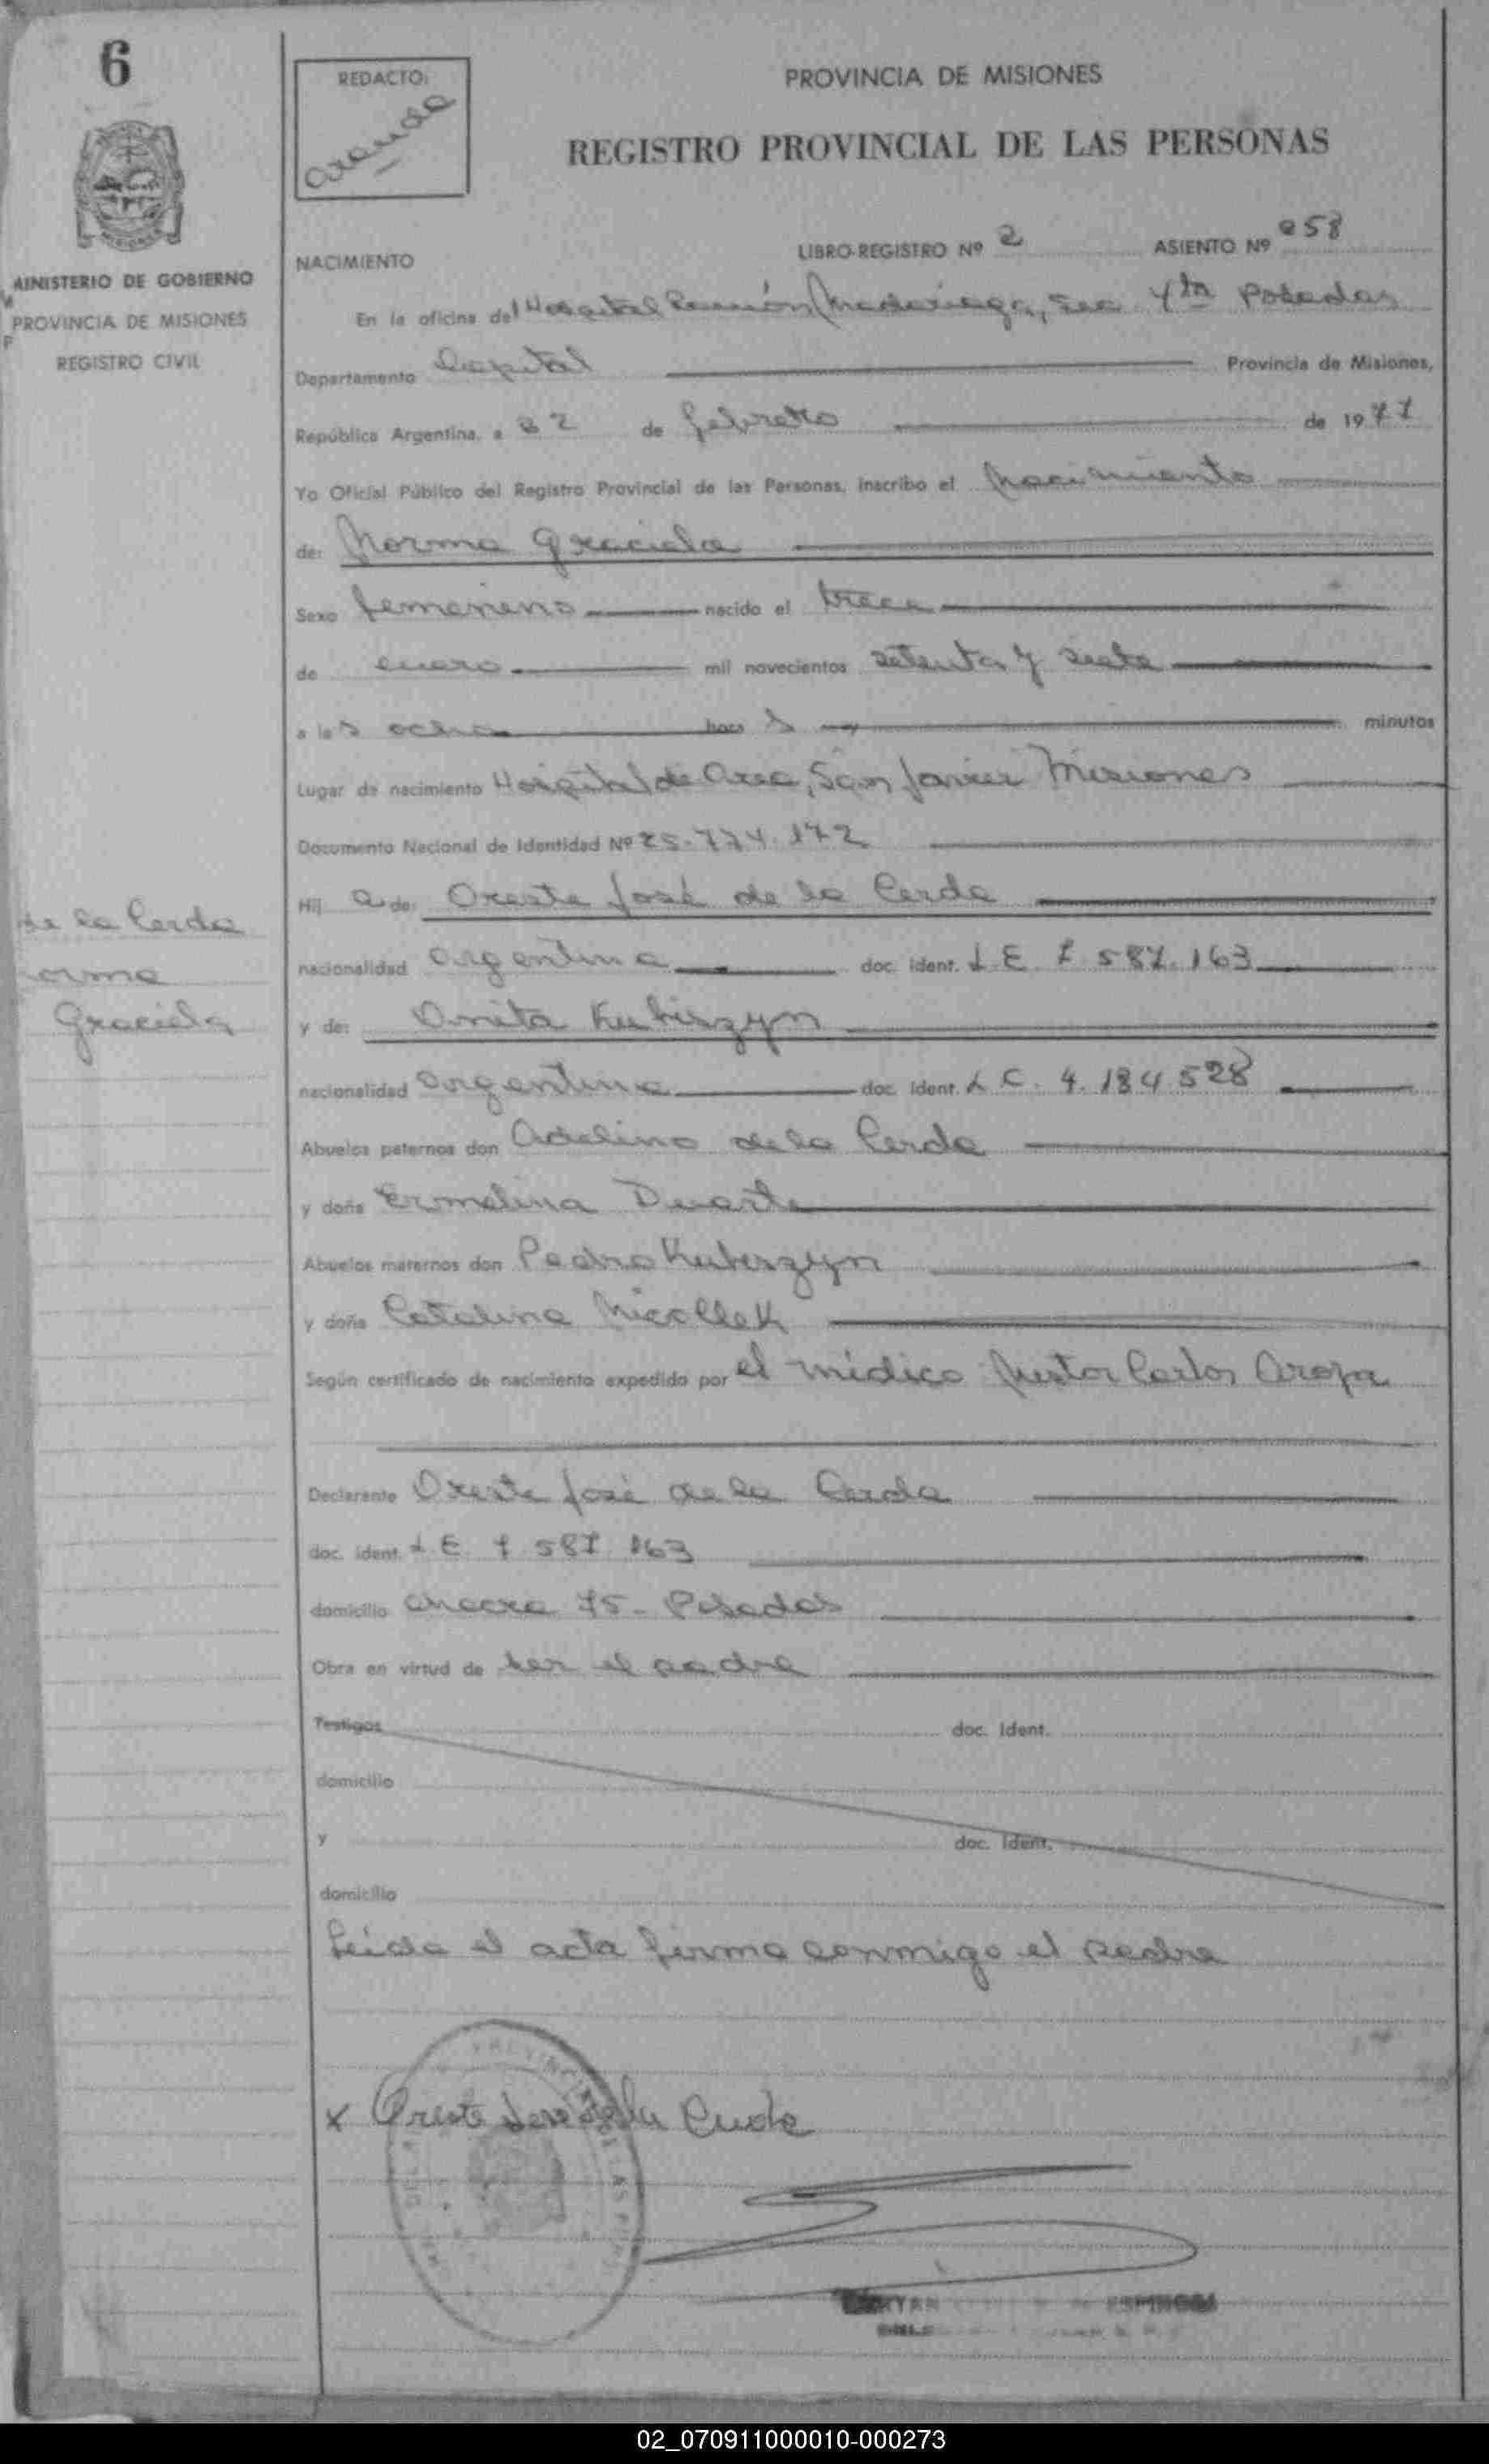 6
REDACTO:
Aranda
PROVINCIA DE MISIONES
REGISTRO PROVINCIAL DE LAS PERSONAS
MINISTERIO DE GOBIERNO
PROVINCIA DE MISIONES
REGISTRO CIVIL
NACIMIENTO LIBRO-REGISTRO Nº 2 ASIENTO Nº 258
En la oficina del Hospital Ramón Madariaga, Sec 4ta Posadas
Departamento Capital Provincia de Misiones,
República Argentina, a 22 de febrero de 1977
Yo Oficial Público del Registro Provincial de las Personas, inscribo el nacimiento
de: Norma Graciela
Sexo femenino nacido el trece
de enero mil novecientos setenta y siete
a las ocho horas minutos
Lugar de nacimiento Hospital de Area, San Javier Misiones
Documento Nacional de Identidad Nº 25.774.172
Hija de: Oreste José de la Cerda
nacionalidad argentina doc. ident. L.E. 7.587.163
de la Cerda
orma
Graciela
y de: Anita Kubiszyn
nacionalidad argentina doc. ident. L.C. 4.184.528
Abuelos paternos don Adelino de la Cerda
y doña Ermelina Duarte
Abuelos maternos don Pedro Kubiszyn
y doña Catalina Nicollek
Según certificado de nacimiento expedido por el médico Nestor Carlos
Declarante Oreste José de la Cerda
doc. ident. L.E. 7.587.163
domicilio chacra 75 - Posadas
Obra en virtud de ser el padre
Testigos doc. Ident.
domicilio
y doc. Ident.
domicilio
Leída el acta firma conmigo el padre
x Oreste Jose de la Cerda
02_070911000010-000273